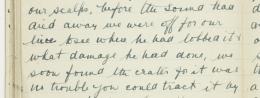 our scalps, before the sound had
died away we were off for our
lives to see where he had lobbed it &
what damage he had done, we
soon found the crater for it was
no trouble you could track it by